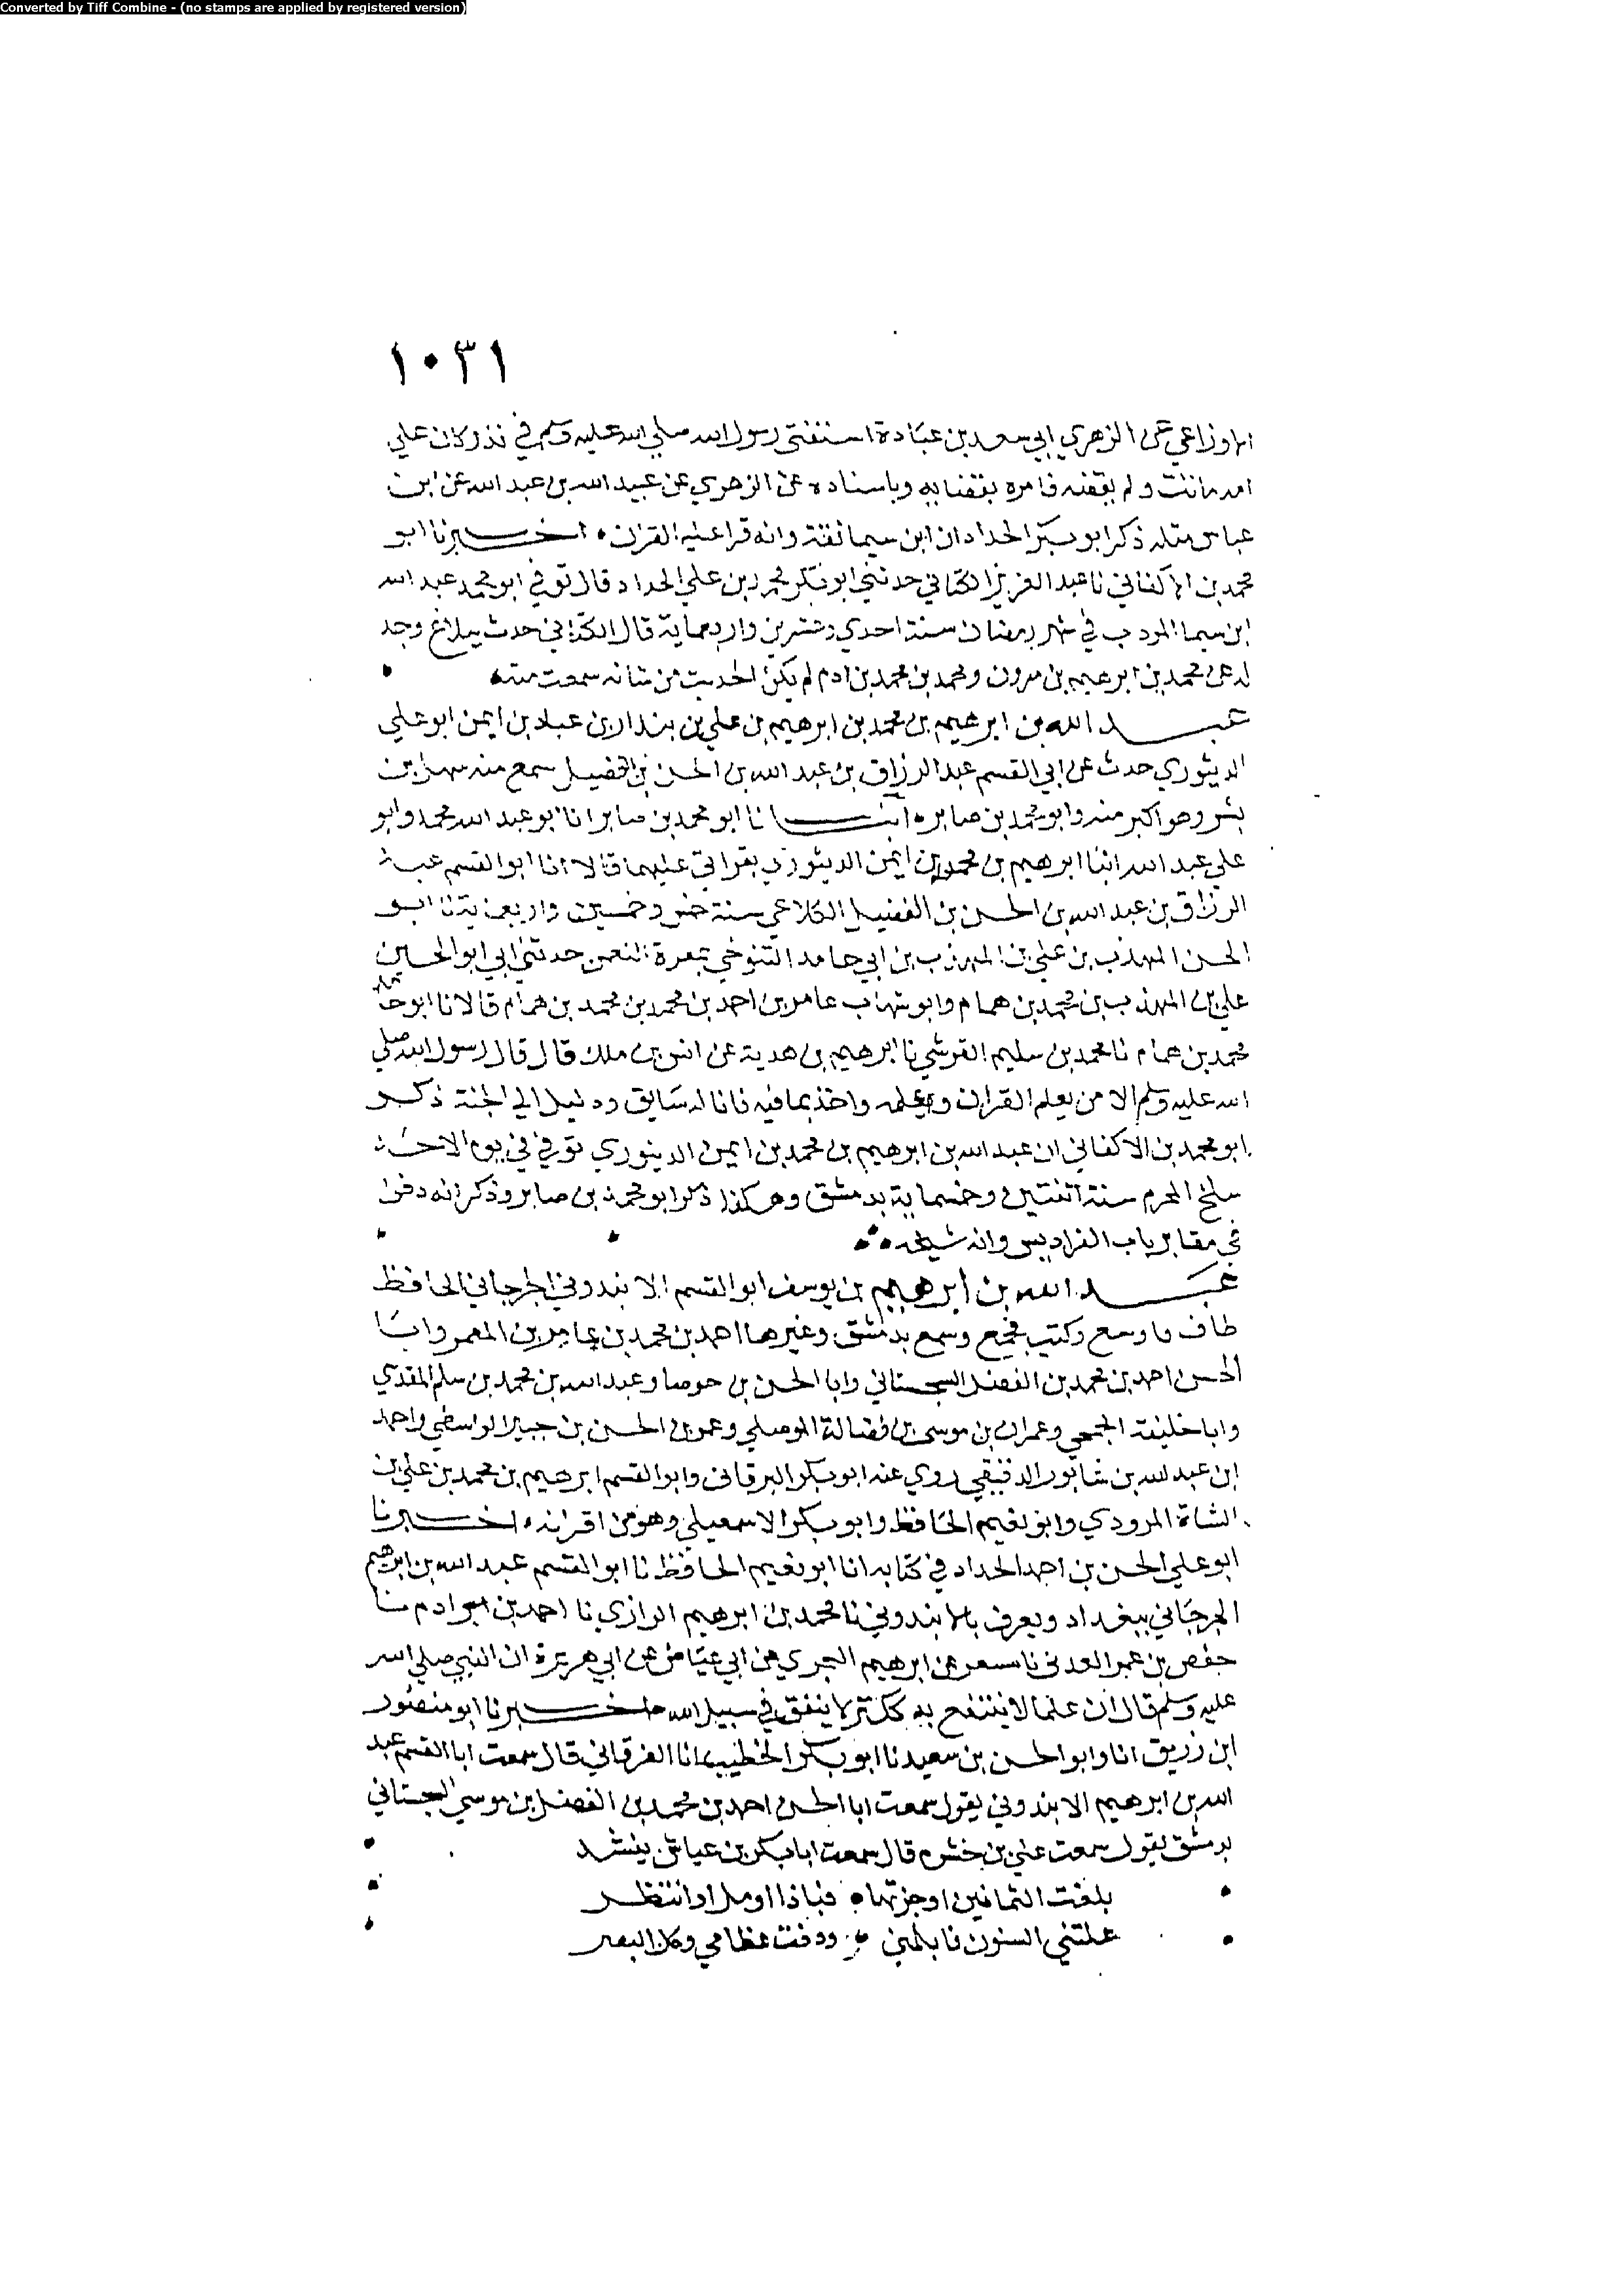 Converted by Tiff Combine - (no stamps are applied by registered version)
١٠٣١
الاوزاعي عن الزهري ان سعد بن عبادة استفتى رسول الله صلي الله عليه وسلم في نذر كان علي
امه ماتت ولم تقضه فامره بقضايه وباسناده عن الزهري عن عبيد الله بن عبد الله عن ابن
عباس مثله ذكر ابو بكر الحداد ان ابن سيما ثقة وانه قرا عليه القران اخبرنا ابو
محمد بن الاكفاني نا عبد العزيز الكتاني حدثني ابو بكر محمد بن علي الحداد قال توفي ابو محمد عبد الله
ابن سيما المودب في شهر رمضان سنة احدي وعشرين واربعماية قال الكتاني حدث ببلاغ وجد
له عن محمد بن ابرهيم بن مرون ومحمد بن محمد بن ادم لم يكن الحديث من شانه سمعت منه
عبد الله بن ابرهيم بن محمد بن ابرهيم بن علي بن بندار بن عباد بن ايمن ابو علي
الدينوري حدث عن ابي القسم عبد الرزاق بن عبد الله بن الحسن بن الفضيل سمع منه سهل بن
بشر وهو اكبر منه وابو محمد بن صابر انبانا ابو محمد بن صابر انا ابو عبد الله محمد وابو
علي عبد الله ابنا ابرهيم بن محمد بن ايمن الدينوري بقراتي عليهما قالا انا ابو القسم عبد
الرزاق بن عبد الله بن الحسن بن الفضيل الكلاعي سنة خمس وخمسين واربعماية نا ابو
الحسن المهذب بن علي بن المهذب بن ابي حامد التنوخي بمعرة النعمن حدثني ابي ابو الحسين
علي بن المهذب بن محمد بن همام وابو شهاب عامر بن احمد بن محمد بن محمد بن همام قالا نا ابو حامد
محمد بن همام نا محمد بن سليم القرشي نا ابرهيم بن هدية عن انس بن ملك قال قال رسول الله صلي
الله عليه وسلم الا من تعلم القران وعلمه واخذ بما فيه فانا له سايق ودليل الي الجنة ذكر
ابو محمد بن الاكفاني ان عبد الله بن ابرهيم بن محمد بن ايمن الدينوري توفي في يوم الاحد
سلخ المحرم سنة اثنتين وخمسماية بدمشق وهكذا ذكر ابو محمد بن صابر وذكر انه دفن
في مقابر باب الفراديس وانه شيخه
عبد الله بن ابرهيم بن يوسف ابو القسم الابندوني الجرجاني الحافظ
طاف وسمع وكتب فجمع وسمع بدمشق وغيرها احمد بن محمد بن عامر بن المعمر وابا
الحسن احمد بن محمد بن الفضل السجستاني وابا الحسن بن جوصا وعبد الله بن محمد بن سلم المقدسي
وابا خليفة الجمحي وعمران بن موسى بن فضالة الموصلي وعمر بن الحسن بن جبير الواسطي واحمد
ابن عبد الله بن شابور الدقيقي روي عنه ابو بكر البرقاني وابو القسم ابرهيم بن محمد بن علي بن
الشاة المرودي وابو نعيم الحافظ وابو بكر الاسمعيلي وهو من اقرانه اخبرنا
ابو علي الحسن بن احمد الحداد في كتابه انا ابو نعيم الحافظ نا ابو القسم عبد الله بن ابرهيم
الجرجاني ببغداد ويعرف بالابندوني نا محمد بن ابرهيم الرازي نا احمد بن ادم نا
حفص بن عمر العدني نا مسعر عن ابرهيم الهجري عن ابي عياض عن ابي هريرة ان النبي صلي الله
عليه وسلم قال ان علما لا ينتفع به ككنز لا ينفق في سبيل الله اخبرنا ابو منصور
ابن زريق انا وابو الحسن بن سعيد نا ابو بكر الخطيب انا البرقاني قال سمعت ابا القسم عبد
الله بن ابرهيم الابندوني يقول سمعت ابا الحسن احمد بن محمد بن الفضل بن موسي السجستاني
بدمشق يقول سمعت علي بن خشرم قال سمعت ابا بكر بن عياش ينشد
بلغت الثمانين او جزتها فماذا اومل او انتظر
علتني السنون فابلينني ودقت عظامي وكل البصر